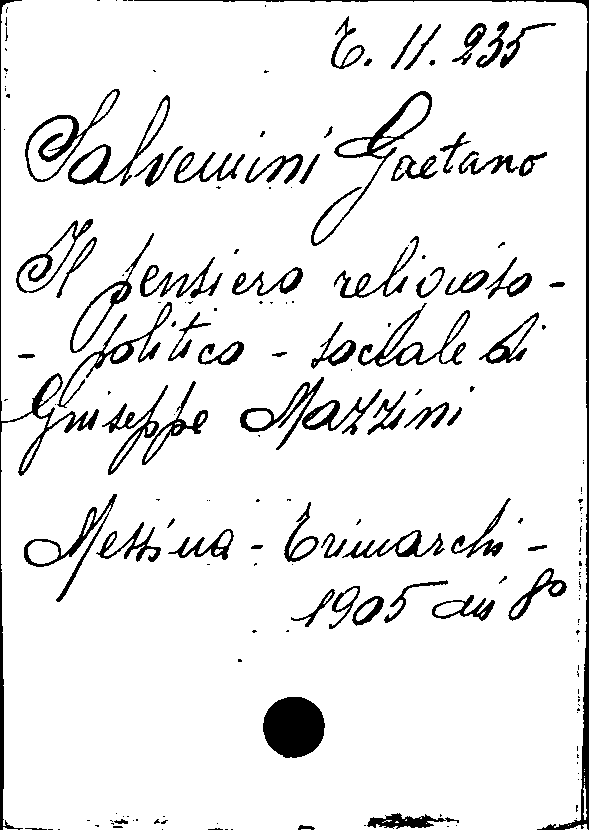 T. 11. 235
Salvemini Gaetano
Il pensiero religioso -
- politico - sociale di
Giuseppe Mazzini
Messina - Trimarchi -
1905 in 8º